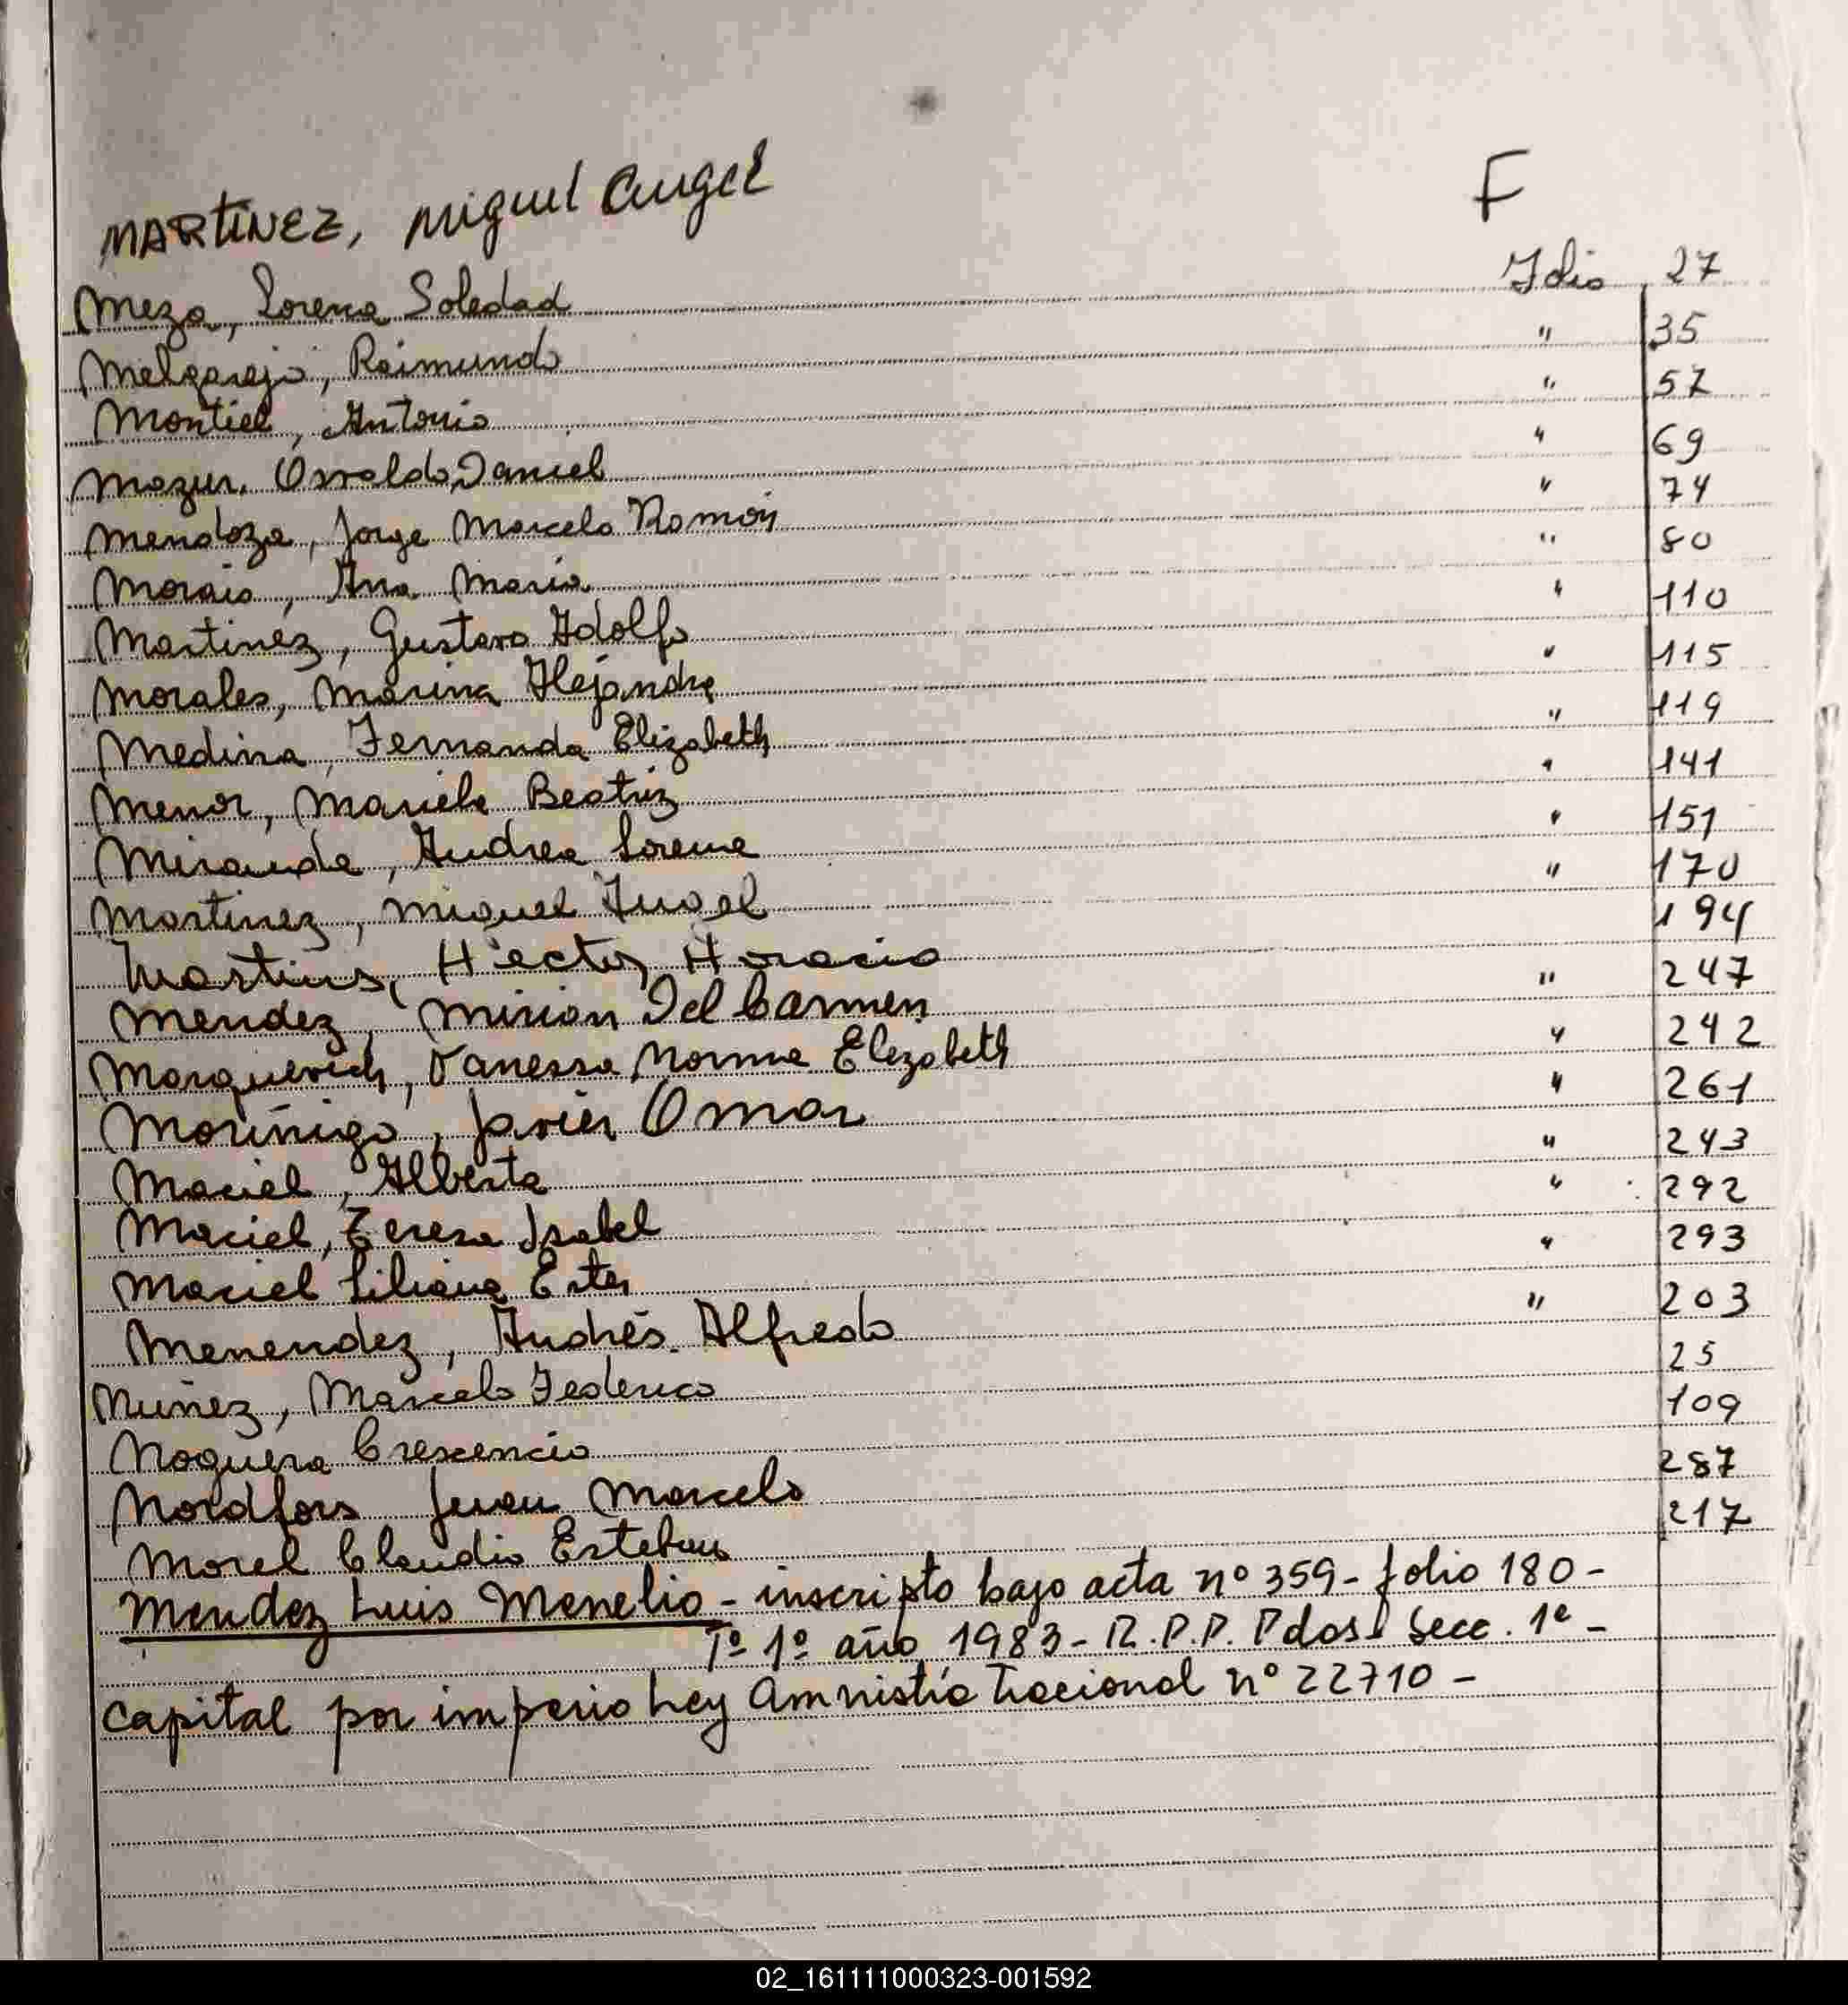 MARTINEZ, Miguel Angel F
Meza, Lorena Soledad Folio 27
Melgarejo, Raimundo " 35
Montiel, Antonio " 57
Mazur, Osvaldo Daniel " 69
Mendoza, Jorge Marcelo Ramón " 74
Morais, Ana Maria " 80
Martinez, Gustavo Adolfo " 110
Morales, Marina Alejandra " 115
Medina, Fernanda Elizabeth " 119
Menor, Mariela Beatriz " 141
Miranda, Andrea Lorena " 151
Martinez, Miguel Angel " 170
Martins, Héctor Horacio 194
Mendez, Mirian Del Carmen " 247
Marquevich, Vanessa Norma Elizabeth " 242
Moriñigo, Javier Omar " 261
Maciel, Alberta " 243
Maciel, Teresa Isabel " 292
Maciel Liliana Ester " 293
Menendez, Andrés Alfredo " 203
Nuñez, Marcelo Federico 25
Noguera Crescencio 109
Nordfors Juan Marcelo 287
Morel Claudio Esteban 217
Mendez Luis Menelio - inscripto bajo acta nº 359 - folio 180 -
Tº 1º año 1983 - R.P.P. Pdos. Secc. 1ª -
Capital por imperio Ley Amnistía Nacional nº 22710 -
02_161111000323-001592